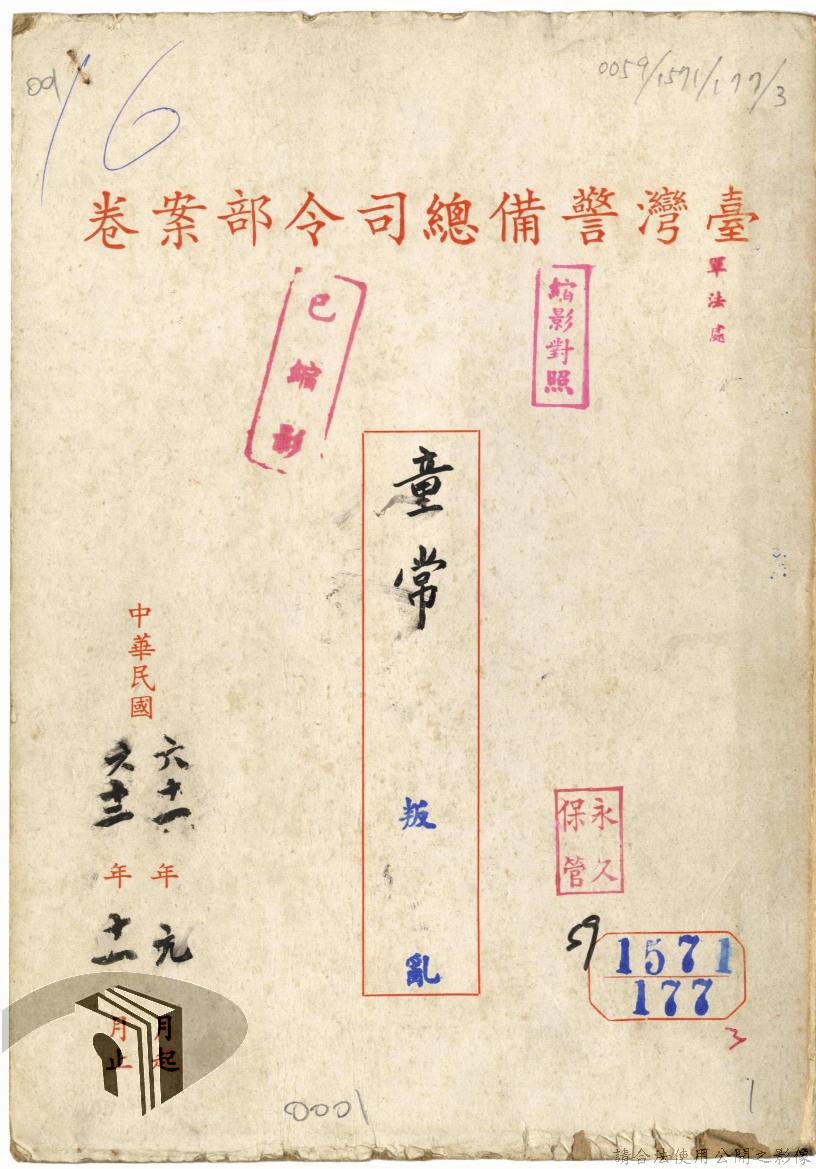 0059/1571/177/3
16
臺灣警備總司令部案卷
軍法處
縮影對照
已縮影
童常
叛亂
永久
保管
59
1571
177
3
中華民國
六十一年元月起
六十三年十一月止
0001
1
請合法使用公開之影像